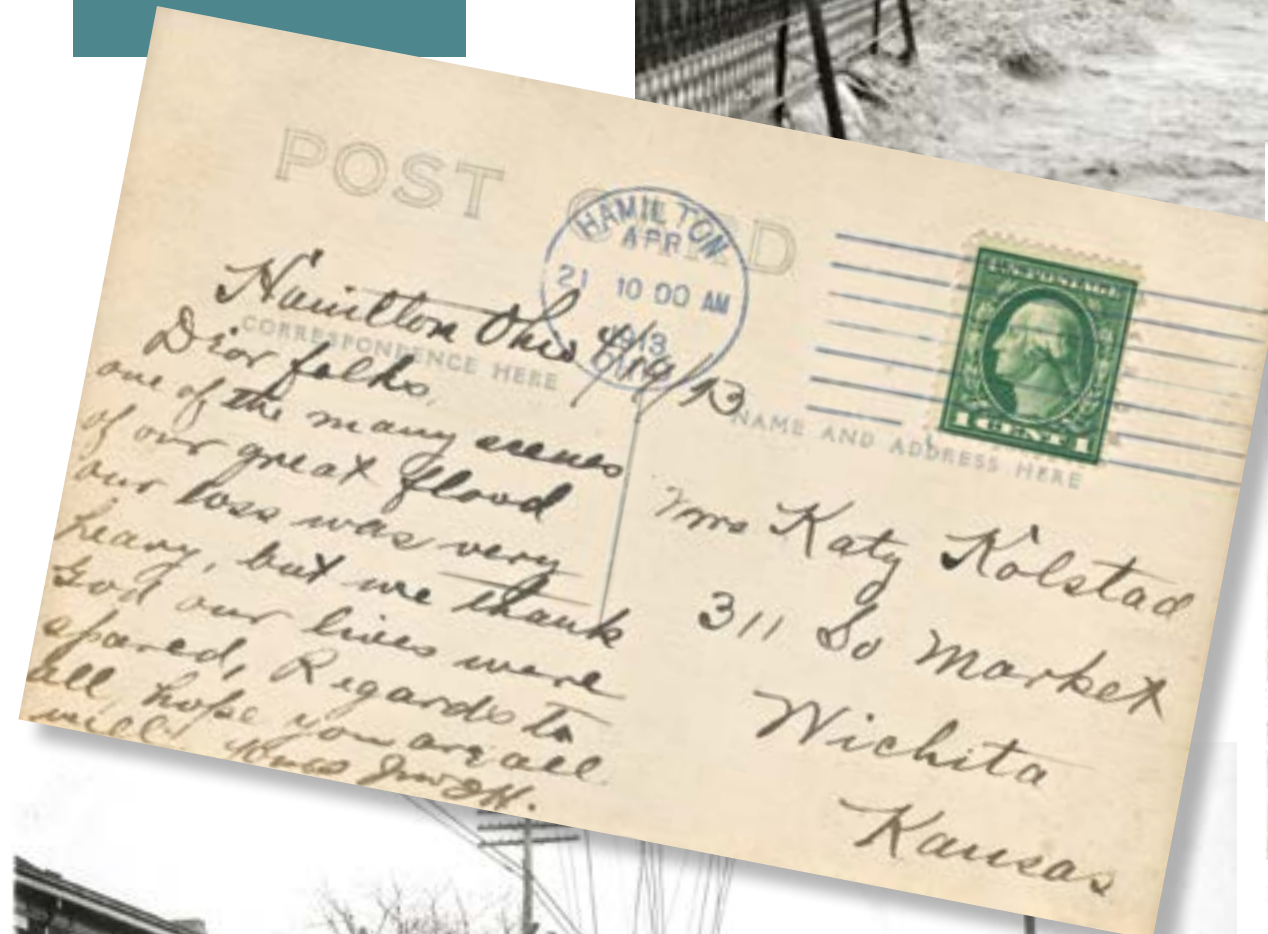 POST CARD
HAMILTON
APR
21 10 00 AM
1913
OHIO
CORRESPONDENCE HERE
NAME AND ADDRESS HERE
U.S. POSTAGE
1 CENT 1
Hamilton Ohio 4/19/13
Dear folks,
one of the many scenes
of our great flood
our loss was very
heavy, but we thank
God our lives were
spared, Regards to
all, hope you are all
well. Yours
Mrs Katy Kolstad
311 So Market
Wichita
Kansas